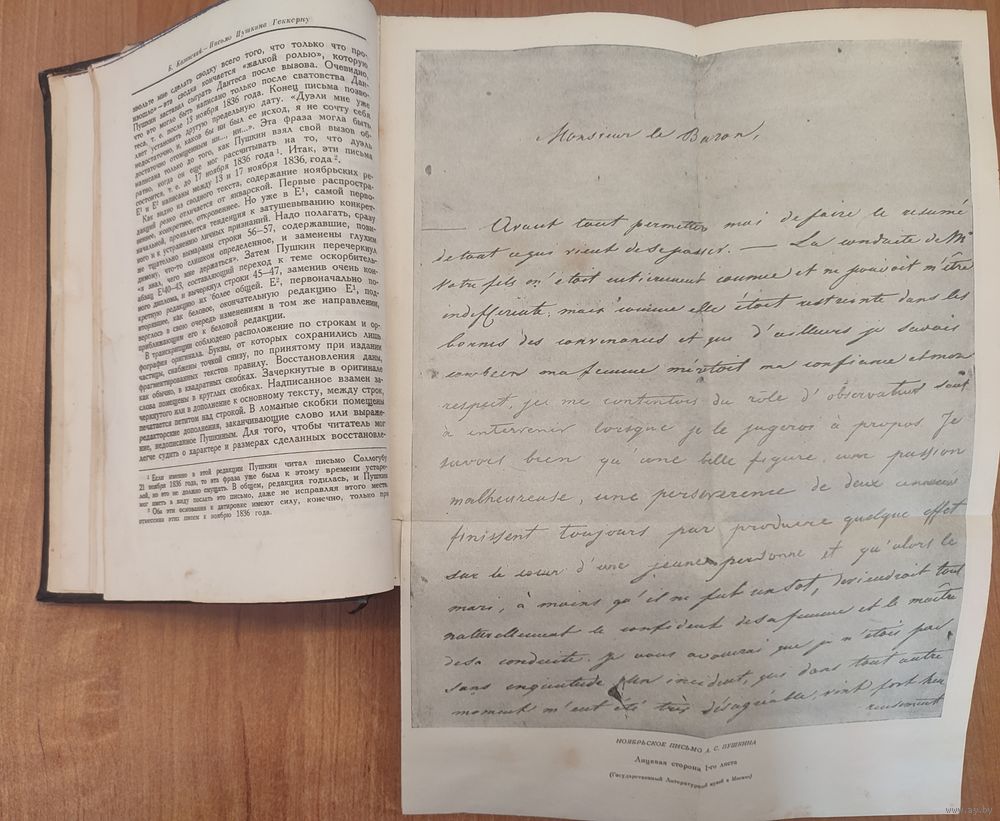 Б. Казанский.— Письмо Пушкина Геккерну
мвольте мне сделать сводку всего того, что только что про-
изошло»—эта сводка кончается «жалкой ролью», которую
Пушкин заставил сыграть Дантеса после вызова. Очевидно,
что это могло быть написано только после сватовства Дан-
теса, т. е. после 13 ноября 1836 года. Конец письма позво-
ляет установить другую предельную дату. «Дуэли мне уже
недостаточно, и, каков бы ни был ее исход, я не сочту себя
достаточно отомщенным ни..., ни...». Эта фраза могла быть
написана только до того, как Пушкин взял свой вызов об-
ратно, когда он еще мог рассчитывать на то, что дуэль
состоится, т. е. до 17 ноября 1836 года ¹. Итак, эти письма
Е¹ и Е² написаны между 13 и 17 ноября 1836, года ².
Как видно из сводного текста, содержание ноябрьских ре-
дакций резко отличается от январской. Первые распростра-
неннее, конкретнее, откровеннее. Но уже в Е¹, самой перво-
начальной, проявляется тенденция к затушевыванию конкрет-
ного и к устранению личных признаний. Надо полагать, сразу
же тщательно вымараны строки 56—57, содержавшие, пови-
димому, что-то слишком определенное, и заменены глухим
«я знал, чего мне держаться». Затем Пушкин перечеркнул
абзац Е¹40—43, составляющий переход к теме оскорбитель-
ного диплома, и вычеркнул строки 45—47, заменив очень кон-
кретную редакцию их более общей. Е², первоначально по-
вторявшее, как беловое, окончательную редакцию Е¹, под-
верглось в свою очередь изменениям в том же направлении,
приближающим его к беловой редакции.
В транскрипции соблюдено расположение по строкам и ор-
фография оригинала. Буквы, от которых сохранились лишь
частицы, снабжены точкой снизу, по принятому при издании
фрагментированных текстов правилу. Восстановления даны,
как обычно, в квадратных скобках. Зачеркнутые в оригинале
слова помещены в круглых скобках. Надписанное взамен за-
черкнутого или в дополнение к основному тексту, между строк,
печатается петитом над строкой. В ломаные скобки помещены
редакторские дополнения, заканчивающие слово или выраже-
ние, недописанное Пушкиным. Для того, чтобы читатель мог
легче судить о характере и размерах сделанных восстановле-
¹ Если именно в этой редакции Пушкин читал письмо Соллогубу
21 ноября 1836 года, то эта фраза уже была к этому времени устаре-
лой, но это не должно смущать. В общем, редакция годилась, и Пушкин
мог иметь в виду послать это письмо, даже не исправляя этого места
² Обе эти основания к датировке имеют силу, конечно, только при
отнесении этих писем к ноябрю 1836 года.
Monsieur le Baron,
— Avant tout permettez moi de faire le resumé
de tout ce qui vient de se passer. — La conduite de Mr
votre fils m'étoit entierement connue et ne pouvoit m'être
indifferente, mais comme elle étoit restreinte dans les
bornes des convenances et que d'ailleurs je savais
combien ma femme meritoit ma confiance et mon
respect, je me contentois du role d'observateur sauf
à intervenir lorsque je le jugerois à propos. Je
savois bien qu'une belle figure, une passion
malheureuse, une perseverence de deux années
finissent toujours par produire quelque effet
sur le cœur d'une jeune personne et qu'alors le
mari, à moins qu'il ne fut un sot, deviendroit tout
naturellement le confident de sa femme et le maître
de sa conduite. Je vous avouerai que je n'étois pas
sans inquietude. Un incident, qui dans tout autre
moment m'eut été très désagréable, vint fort heu
reusement
НОЯБРЬСКОЕ ПИСЬМО А. С. ПУШКИНА
Лицевая сторона 1-го листа
(Государственный Литературный музей в Москве)
www.ay.by